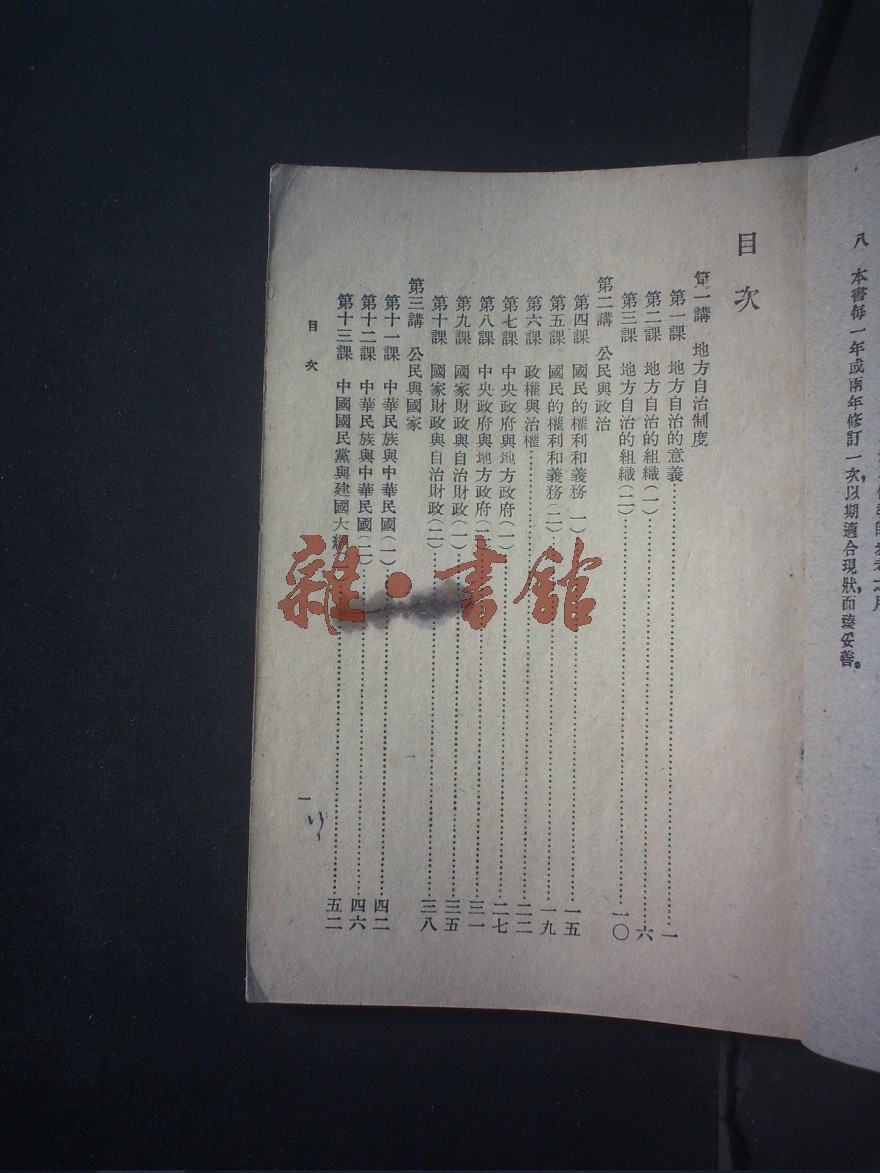 八　本書每一年或兩年修訂一次，以期適合現狀，而臻妥善。
目次
第一講　地方自治制度
第一課　地方自治的意義……一
第二課　地方自治的組織（一）……六
第三課　地方自治的組織（二）……一〇
第二講　公民與政治
第四課　國民的權利和義務（一）……一五
第五課　國民的權利和義務（二）……一九
第六課　政權與治權……二二
第七課　中央政府與地方政府（一）……二七
第八課　中央政府與地方政府（二）……三一
第九課　國家財政與自治財政（一）……三五
第十課　國家財政與自治財政（二）……三八
第三講　公民與國家
第十一課　中華民族與中華民國（一）……四二
第十二課　中華民族與中華民國（二）……四六
第十三課　中國國民黨與建國大綱……五二
目次
一
雜·書館